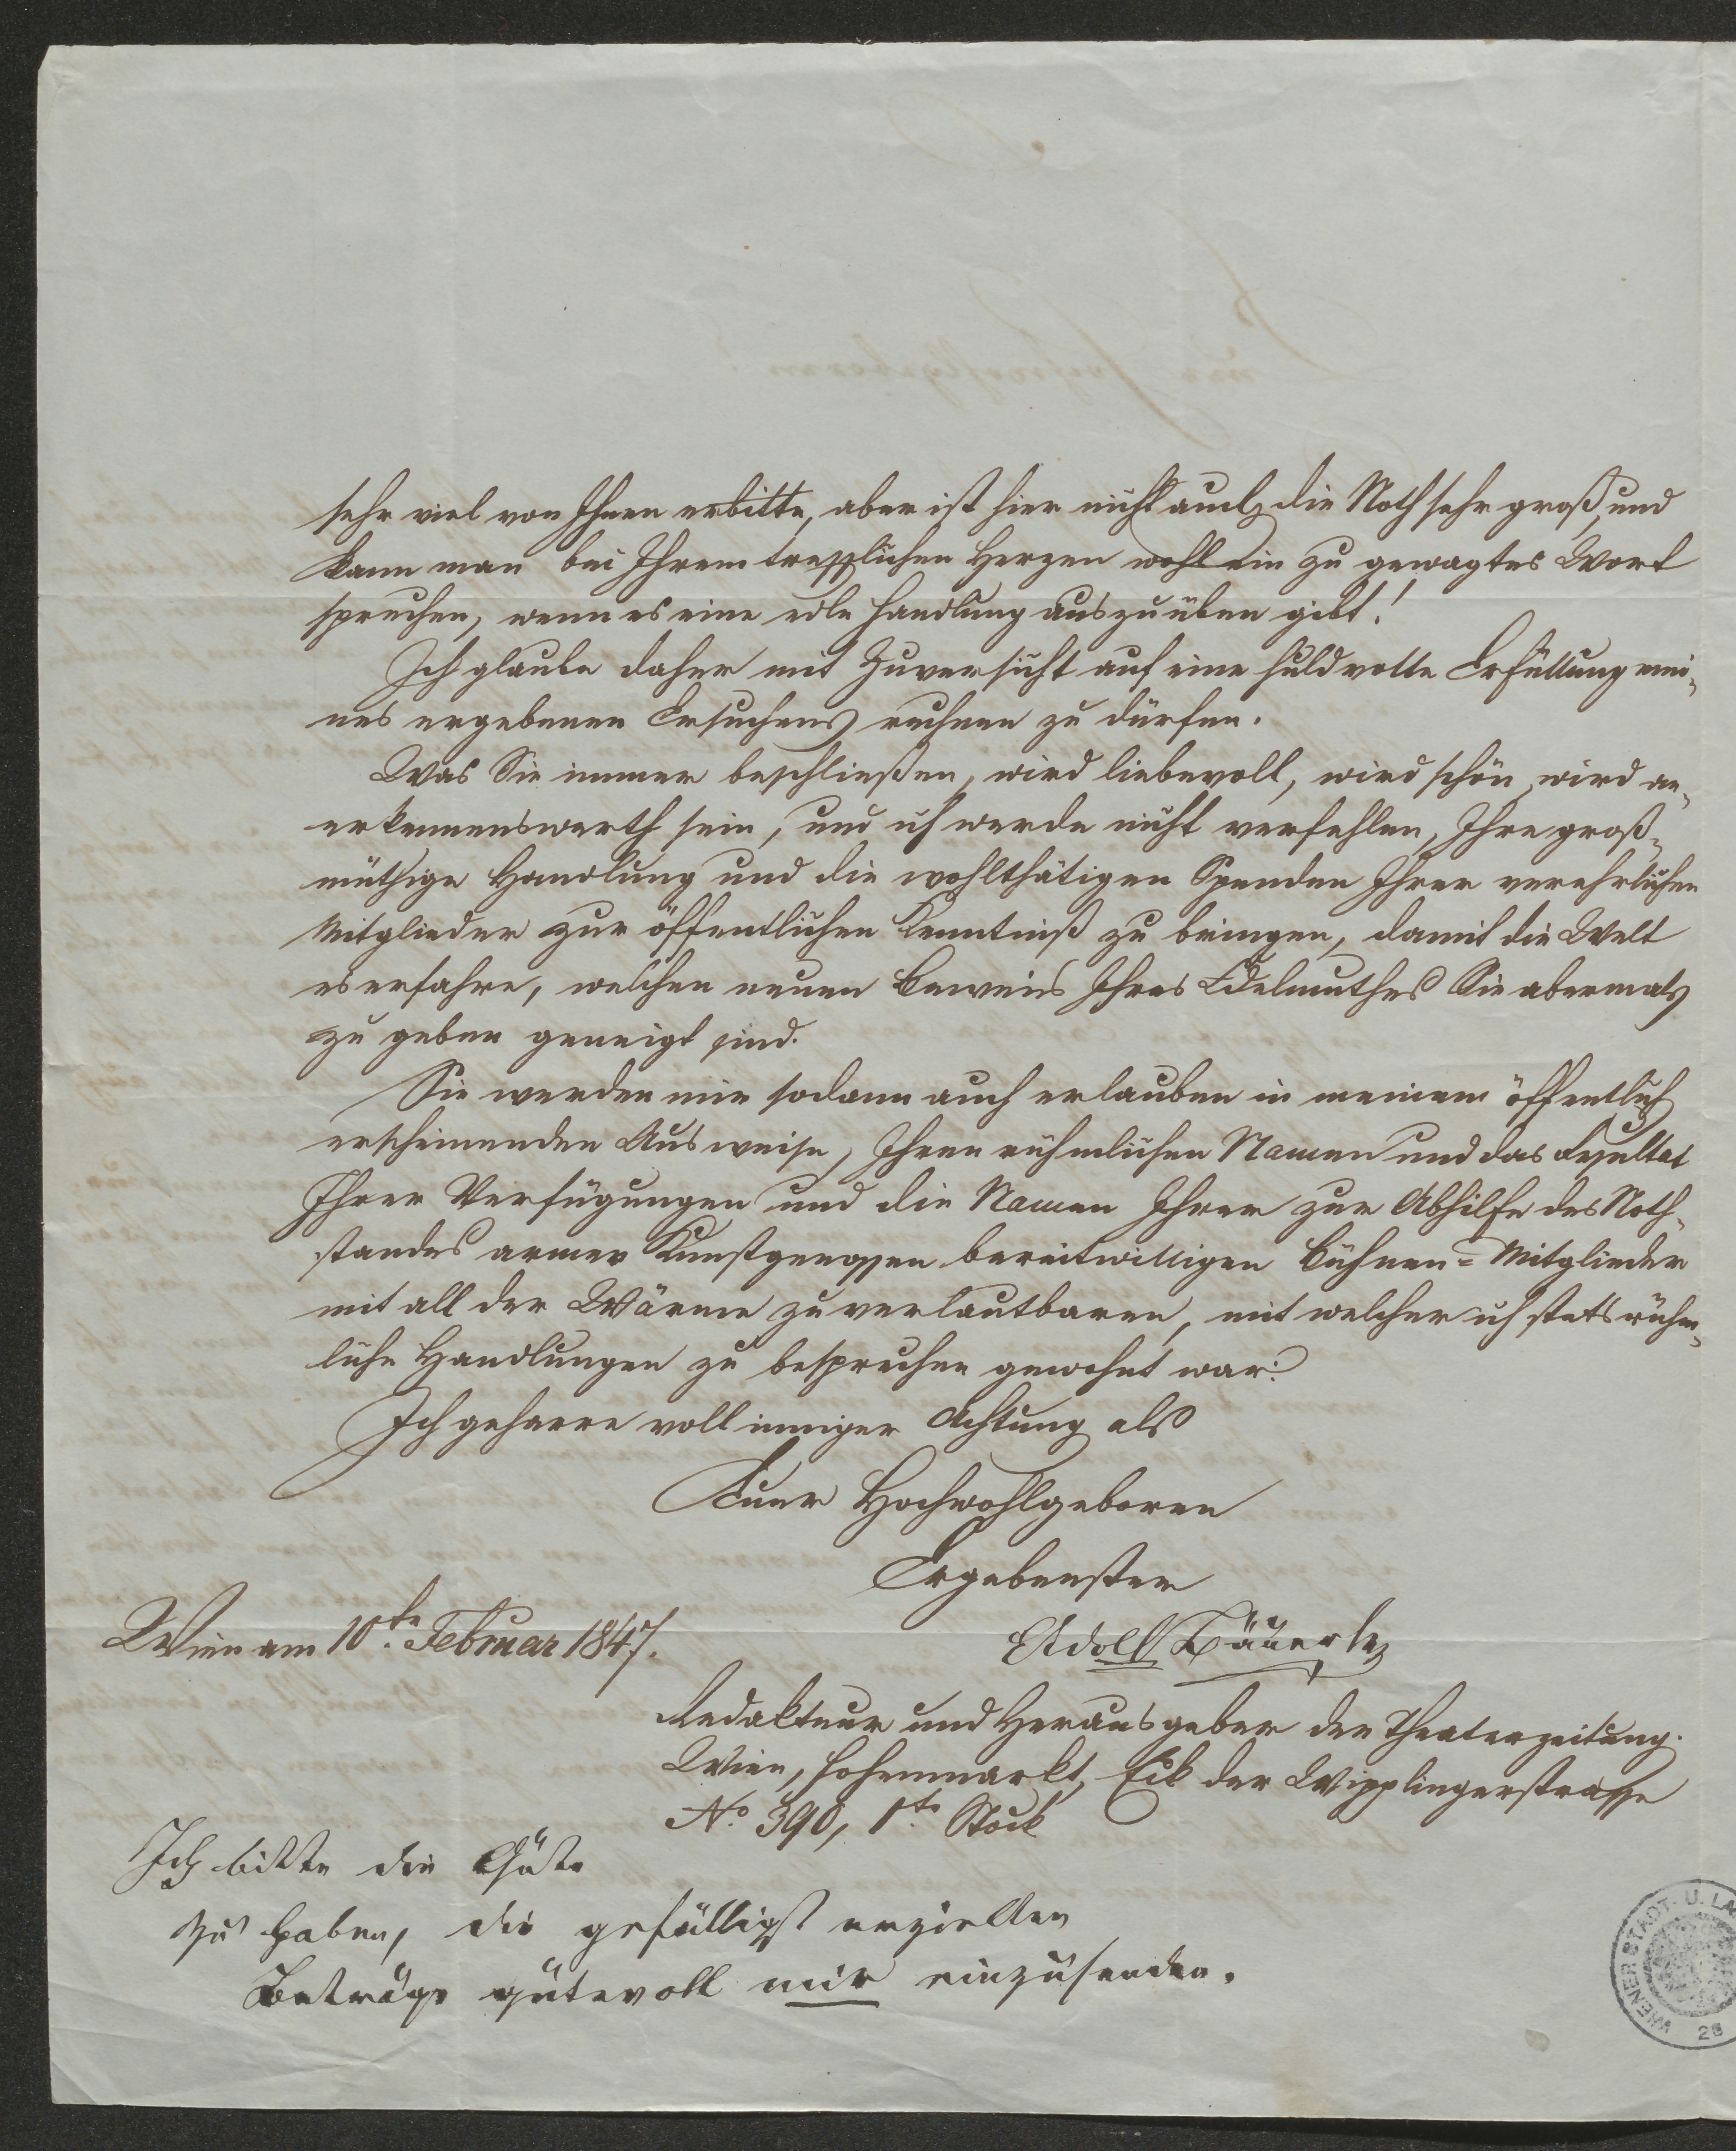 sehr viel von Ihnen erbitte, aber ist hier nicht auch die Noth sehr groß, und
kann man bei Ihrem trefflichen Herzen wohl ein zu gewagtes Wort
sprechen, wenn es eine edle Handlung auszuüben gibt!
Ich glaube daher mit Zuversicht auf eine huldvolle Erfüllung mei-
nes ergebenen Ersuchens rechnen zu dürfen.
Was Sie immer beschließen, wird liebevoll, wird schön, wird an-
erkennenswerth sein, und ich werde nicht verfehlen, Ihre groß-
müthige Handlung und die wohlthätigen Spenden Ihrer verehrlichen
Mitglieder zur öffentlichen Kenntniß zu bringen, damit die Welt
es erfahre, welchen neuen Beweis Ihres Edelmuthes Sie abermals
zu geben geneigt sind.
Sie werden mir sodann auch erlauben in meinem öffentlich
erscheinenden Ausweise, Ihren rühmlichen Namen und das Resultat
Ihrer Verfügungen und die Namen Ihrer zur Abhilfe des Noth-
standes armer Kunstgenossen bereitwilligen Bühnen=Mitglieder
mit all der Wärme zu verlautbaren, mit welcher ich stets rühm-
liche Handlungen zu besprechen gewohnt war.
Ich geharre voll inniger Achtung als
Euer Hochwohlgeboren
Ergebenster
Wien am 10te. Februar 1847.
Adolf Bäuerle
Redakteur und Herausgeber der Theaterzeitung.
Wien, Hohenmarkt, Eck der Wipplingerstrasse
No. 390, 1te. Stock
Ich bitte die Güte
zu haben, die gefälligst erzielten
Beträge gütevoll mir einzusenden.
WIENER STADT- U. LA
28